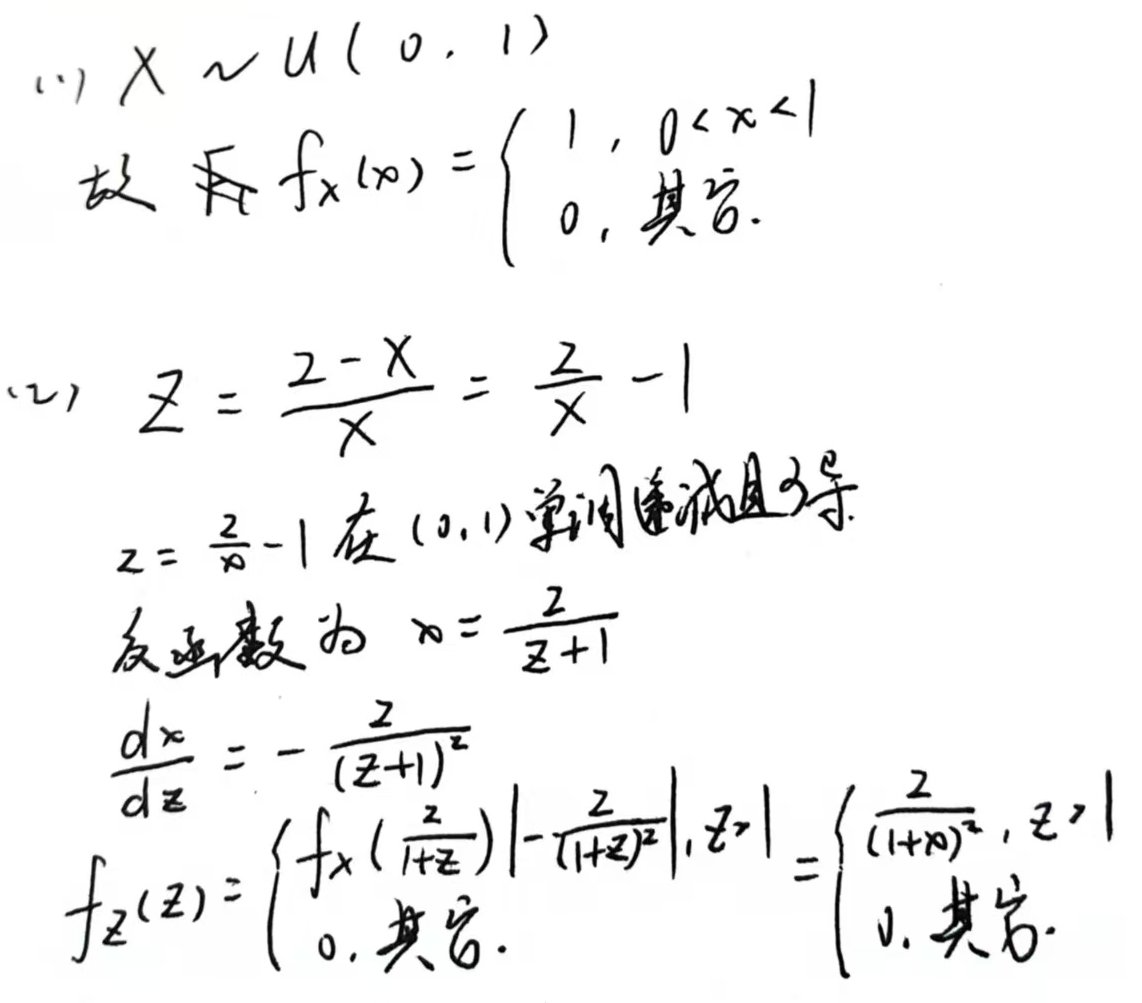 (1) X ~ U(0, 1)
故 f_X(x) = { 1, 0<x<1
0, 其它.
(2) Z = \frac{2-X}{X} = \frac{2}{X} - 1
z = \frac{2}{x} - 1 在 (0,1) 单调递减且可导.
反函数为 x = \frac{2}{z+1}
\frac{dx}{dz} = - \frac{2}{(z+1)^2}
f_Z(z) = { f_X(\frac{2}{1+z}) |-\frac{2}{(1+z)^2}|, z>1 = { \frac{2}{(1+x)^2}, z>1
0, 其它. 0, 其它.